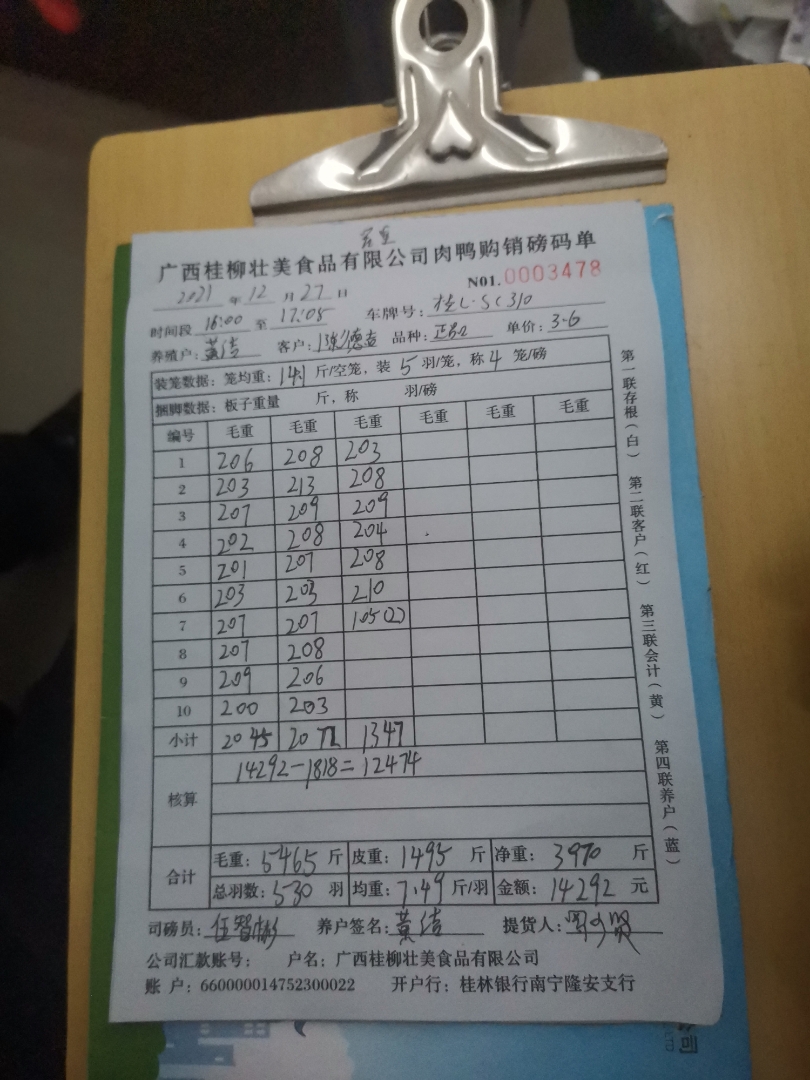 广西桂柳壮美食品有限公司肉鸭购销磅码单
2021 年 12 月 27 日 N01.0003478
时间段 16:00 至 17:08 车牌号: 桂L·SC310
养殖户: 黄洁 客户: 品种: 单价: 3.6
装笼数据: 笼均重: 14.1 斤/空笼, 装 5 羽/笼, 称 4 笼/磅
捆脚数据: 板子重量 斤, 称 羽/磅
编号 毛重 毛重 毛重 毛重 毛重 毛重
1 206 208 203
2 203 213 208
3 207 209 209
4 202 208 204
5 201 207 208
6 203 203 210
7 207 207 105(2)
8 207 208
9 209 206
10 200 203
小计 2045 2072 1347
核算 14292-1818=12474
合计 毛重: 5465 斤 皮重: 1495 斤 净重: 3970 斤
总羽数: 530 羽 均重: 7.49 斤/羽 金额: 14292 元
司磅员: 伍智彬 养户签名: 黄洁 提货人:
公司汇款账号: 户名: 广西桂柳壮美食品有限公司
账 户: 660000014752300022 开户行: 桂林银行南宁隆安支行
第一联存根(白) 第二联客户(红) 第三联会计(黄) 第四联养户(蓝)